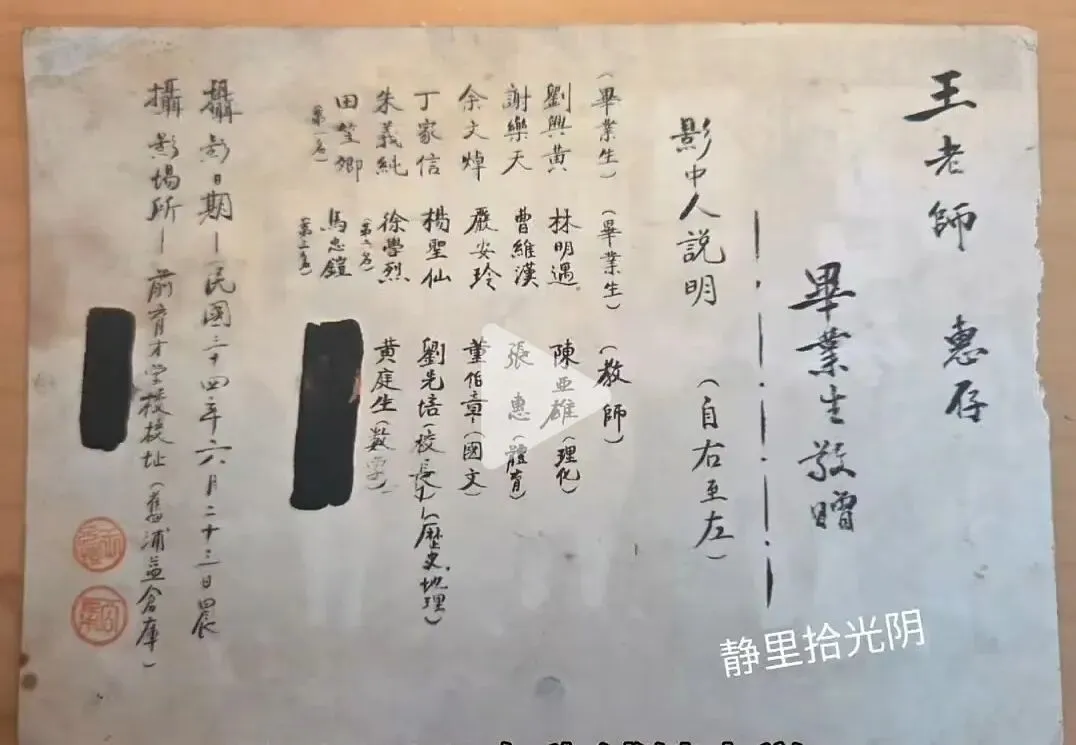 王老師 惠存
畢業生敬贈
影中人説明 （自右至左）
（畢業生）（畢業生）（教師）
劉興黄 林明遇 陳亚雄（理化）
謝樂天 曹維漢 張惠（體育）
余文焯 嚴安玲 董伯章（國文）
丁家信 楊聖仙 劉先培（校長）（歷史.地理）
朱義純 徐學烈（第二名） 黄庭生（數学）
田堃卿（第一名） 馬忠鎧（第三名）
攝影日期－民國三十四年六月二十三日晨
攝影場所－前育才学校校址（舊浦益倉庫）
静里拾光阴